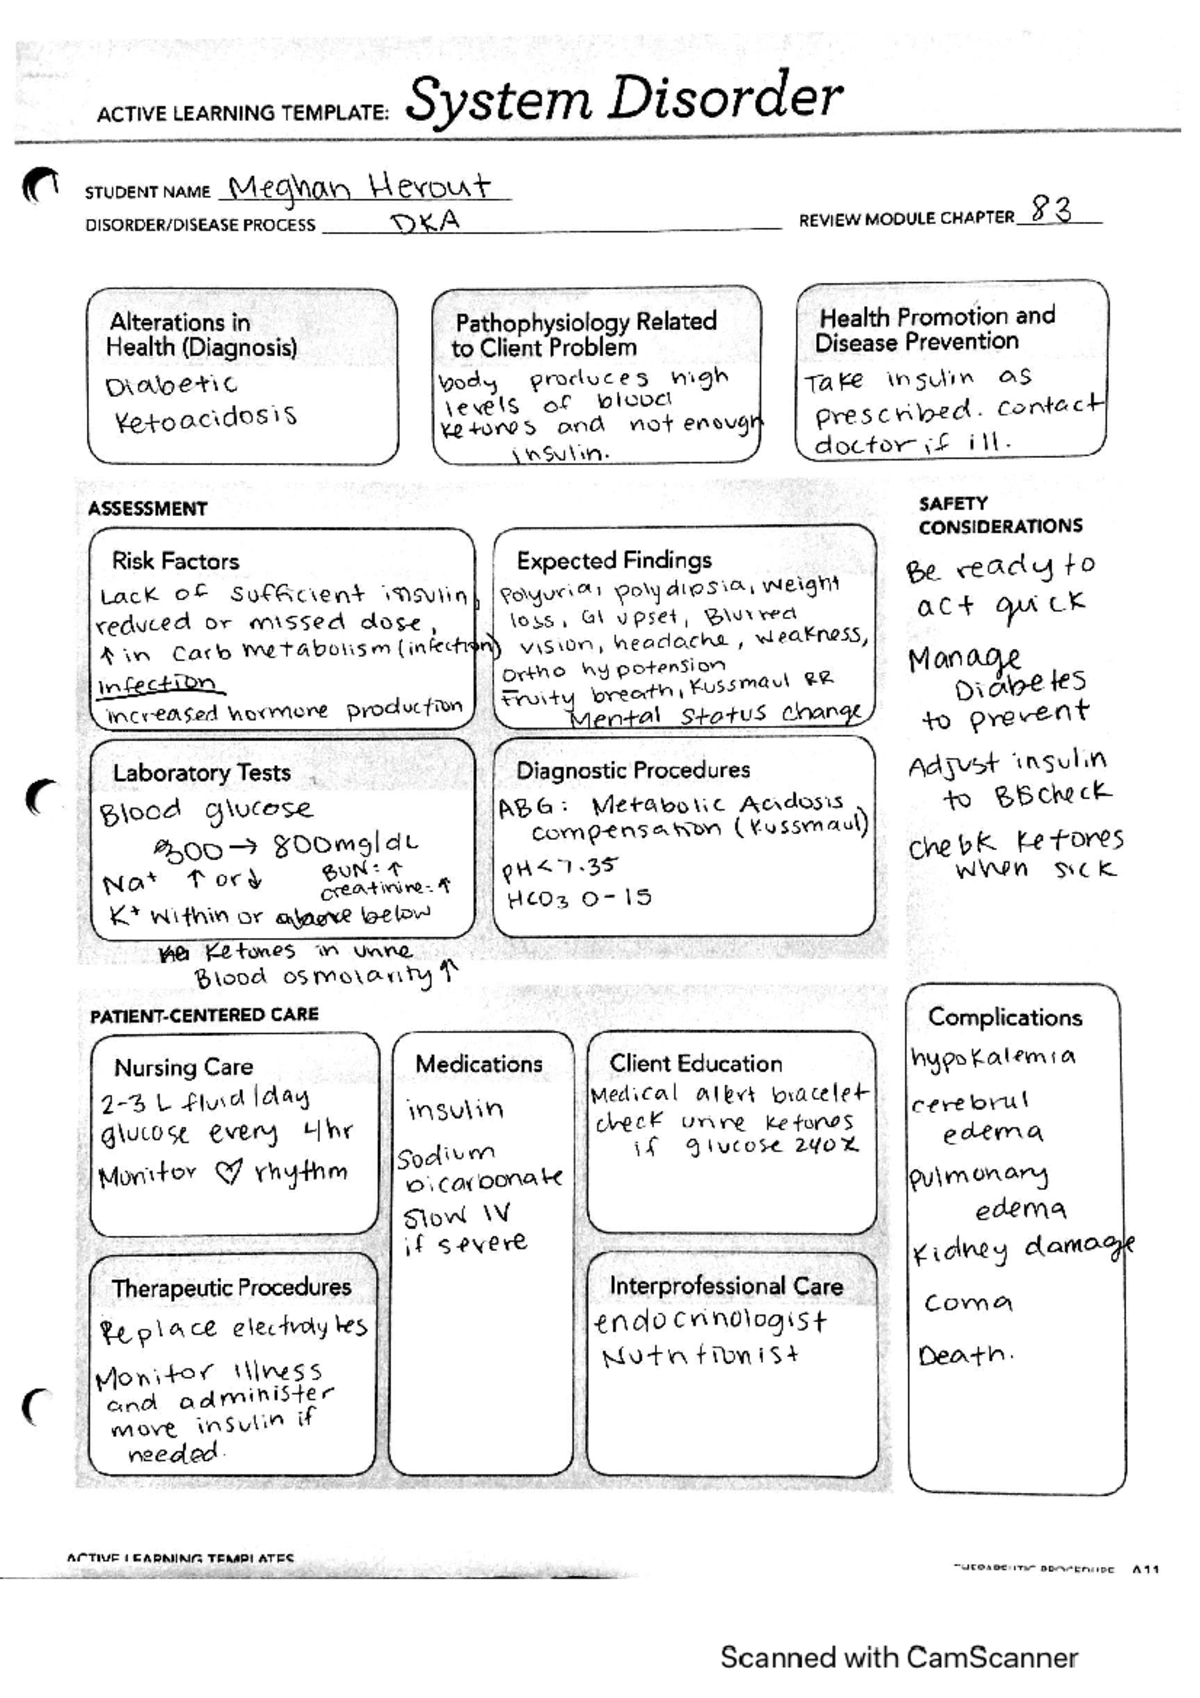 ACTIVE LEARNING TEMPLATE: System Disorder
STUDENT NAME Meghan Herout
DISORDER/DISEASE PROCESS DKA
REVIEW MODULE CHAPTER 83
Alterations in
Health (Diagnosis)
Diabetic
Ketoacidosis
Pathophysiology Related
to Client Problem
body produces high
levels of blood
ketones and not enough
insulin.
Health Promotion and
Disease Prevention
Take insulin as
prescribed. contact
doctor if ill.
ASSESSMENT
Risk Factors
Lack of sufficient insulin,
reduced or missed dose,
↑ in carb metabolism (infection)
infection
increased hormone production
Expected Findings
Polyuria, polydipsia, weight
loss, GI upset, Blurred
vision, headache, weakness,
Ortho hypotension
Fruity breath, Kussmaul RR
Mental Status change
Laboratory Tests
Blood glucose
300 → 800mg/dL
Na+ ↑ or ↓
BUN: ↑
creatinine: ↑
K+ within or above below
Ketones in urine
Blood osmolarity ↑
Diagnostic Procedures
ABG: Metabolic Acidosis
compensation (Kussmaul)
pH < 7.35
HCO3 0-15
SAFETY
CONSIDERATIONS
Be ready to
act quick
Manage
Diabetes
to prevent
Adjust insulin
to BG check
check Ketones
when sick
PATIENT-CENTERED CARE
Nursing Care
2-3 L fluid/day
glucose every 4hr
Monitor ♡ rhythm
Medications
insulin
Sodium
bicarbonate
Slow IV
if severe
Client Education
Medical alert bracelet
check urine ketones
if glucose 240
Therapeutic Procedures
Replace electrolytes
Monitor illness
and administer
more insulin if
needed.
Interprofessional Care
endocrinologist
Nutritionist
Complications
hypokalemia
cerebrul
edema
pulmonary
edema
Kidney damage
Coma
Death.
ACTIVE LEARNING TEMPLATES
THERAPEUTIC PROCEDURE A11
Scanned with CamScanner